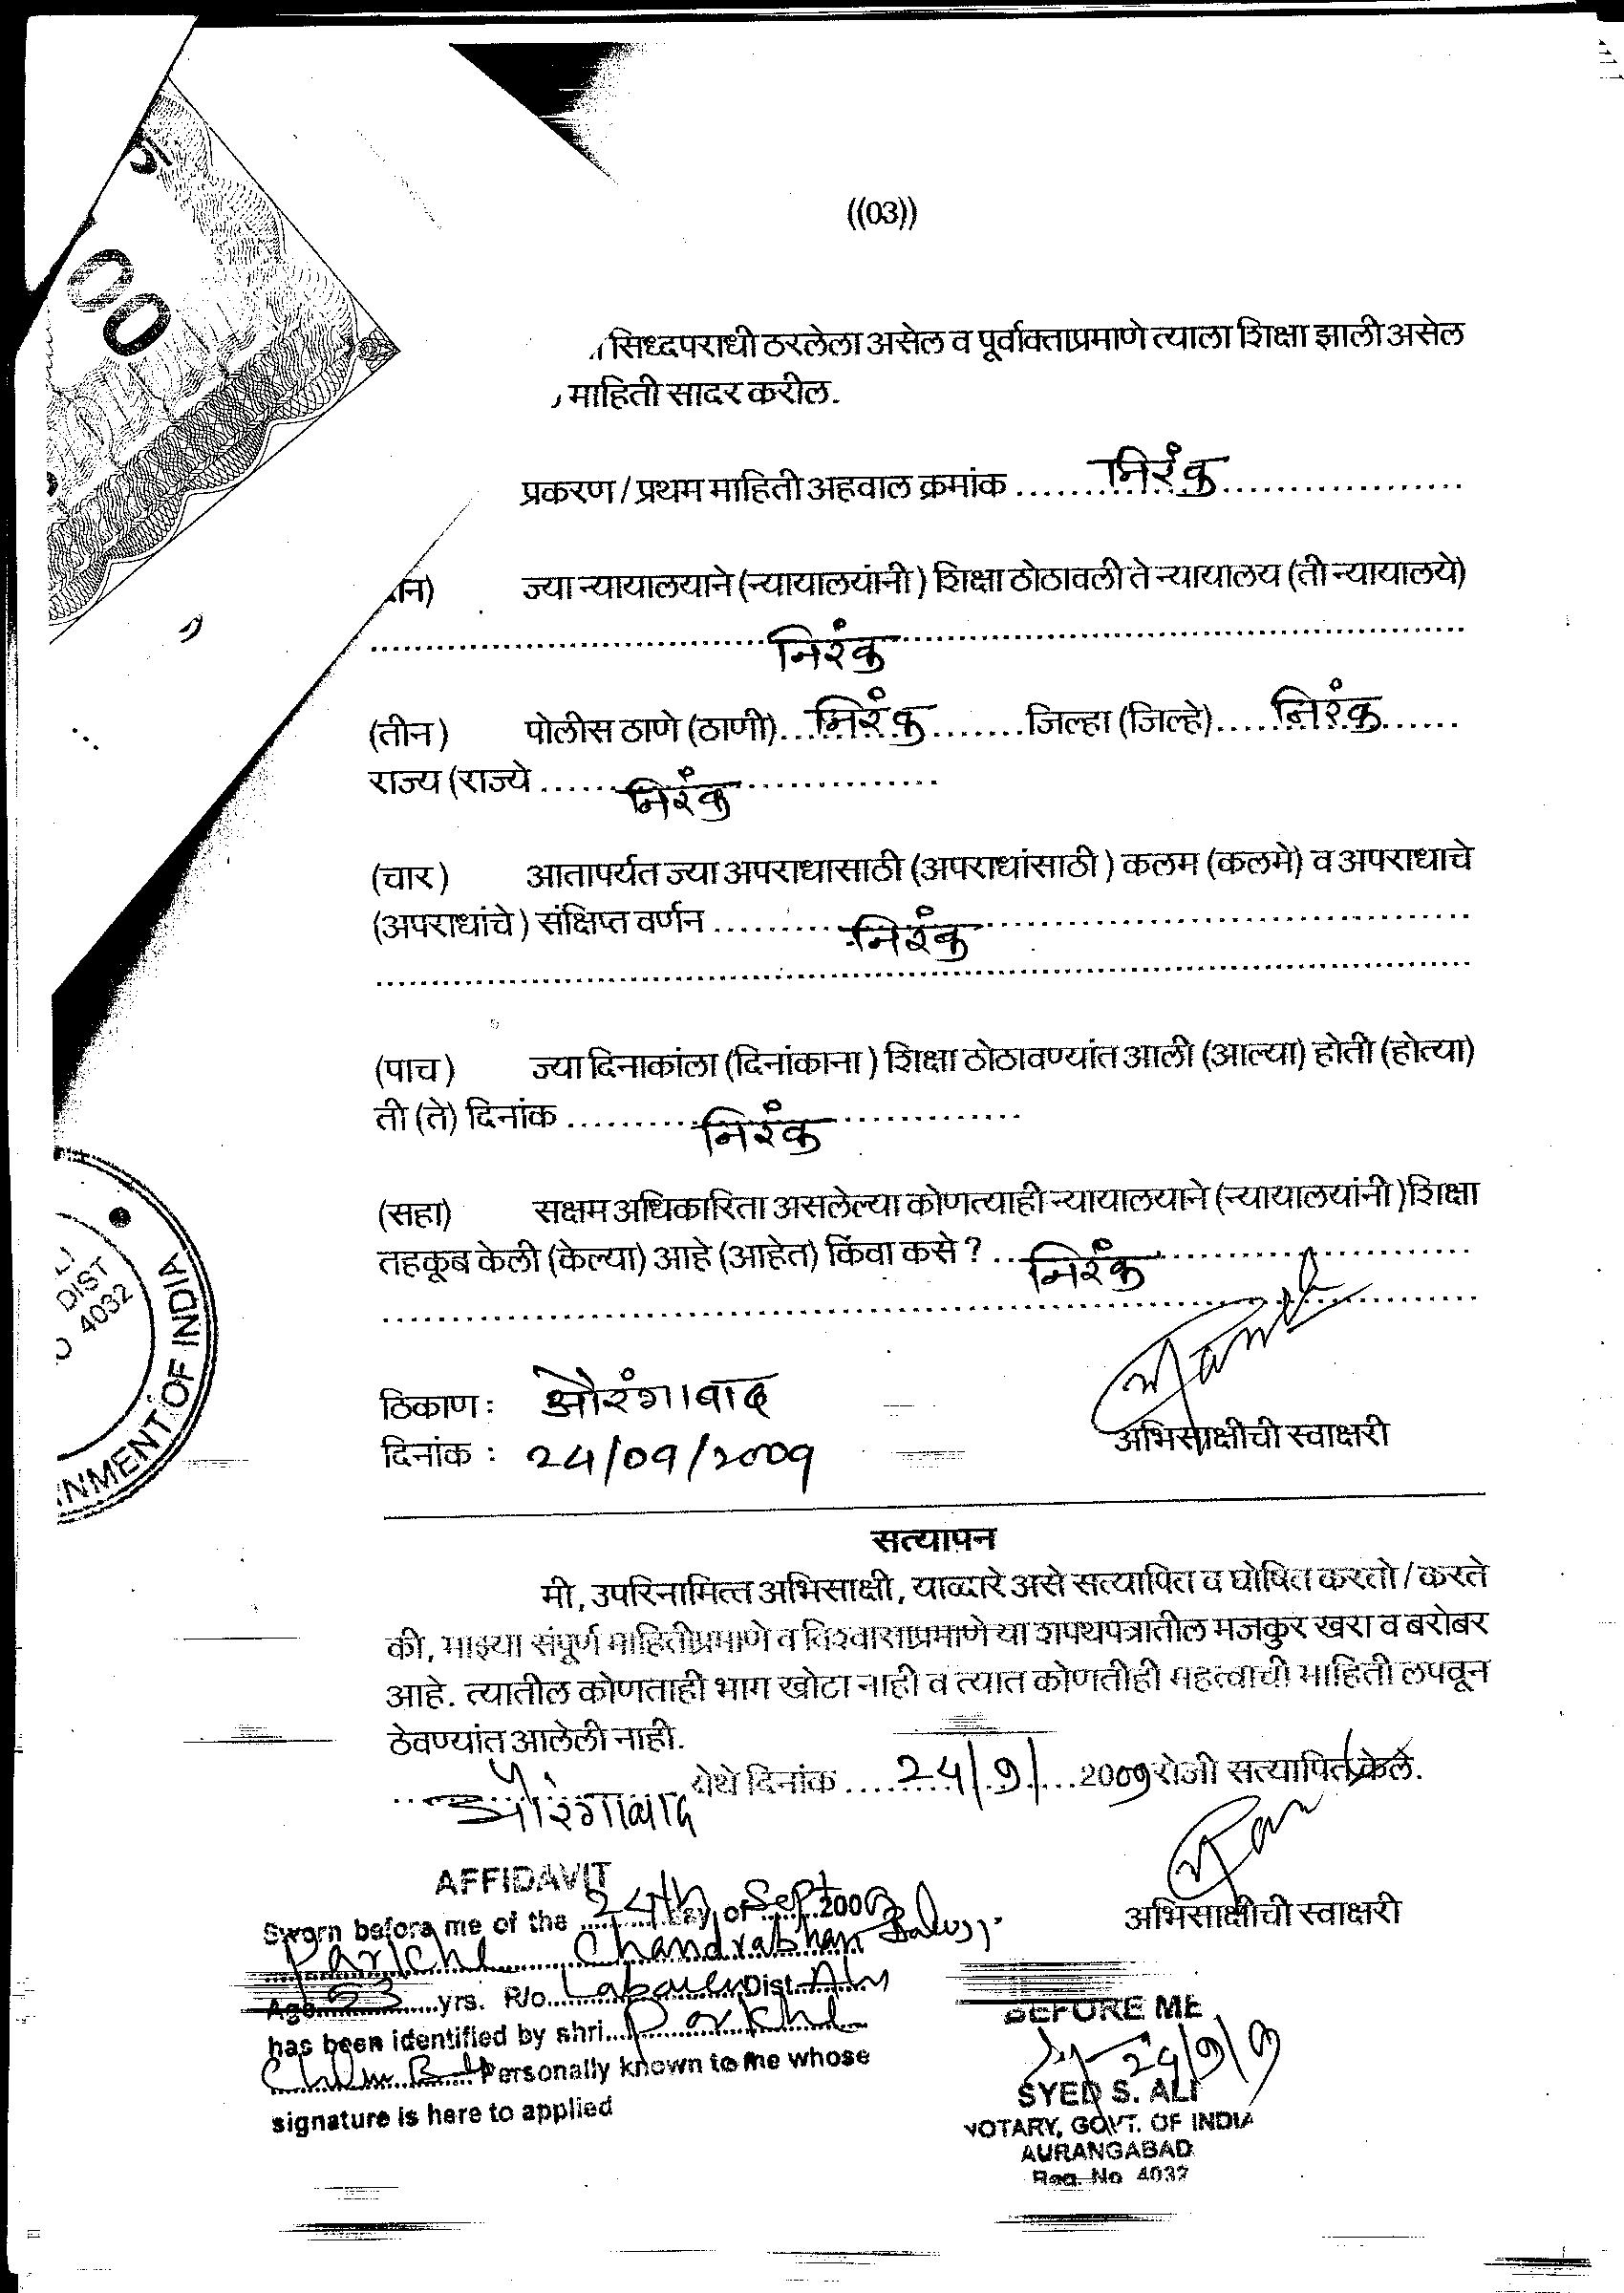 ((03))
सिध्दपराधी ठरलेला असेल व पूर्वाक्ताप्रमाणे त्याला शिक्षा झाली असेल
माहिती सादर करील.
प्रकरण / प्रथम माहिती अहवाल क्रमांक .... निरंक ....
ज्या न्यायालयाने (न्यायालयांनी) शिक्षा ठोठावली ते न्यायालय (ती न्यायालये)
.... निरंक ....
(तीन) पोलीस ठाणे (ठाणी).... निरंक ....जिल्हा (जिल्हे).... निरंक ....
राज्य (राज्ये .... निरंक ....
(चार) आतापर्यत ज्या अपराधासाठी (अपराधांसाठी) कलम (कलमे) व अपराधाचे
(अपराधांचे) संक्षिप्त वर्णन .... निरंक ....
(पाच) ज्या दिनाकांला (दिनांकाना) शिक्षा ठोठावण्यांत आली (आल्या) होती (होत्या)
ती (ते) दिनांक .... निरंक ....
(सहा) सक्षम अधिकारिता असलेल्या कोणत्याही न्यायालयाने (न्यायालयांनी)शिक्षा
तहकूब केली (केल्या) आहे (आहेत) किंवा कसे ? .... निरंक ....
DIST
4032
NMENT OF INDIA
ठिकाण : औरंगाबाद
अभिसाक्षीची स्वाक्षरी
दिनांक : 24/09/2009
सत्यापन
मी, उपरिनामित्त अभिसाक्षी, याव्दारे असे सत्यापित व घोषित करतो / करते
की, माझ्या संपूर्ण माहितीप्रमाणे व विश्वासाप्रमाणे या शपथपत्रातील मजकुर खरा व बरोबर
आहे. त्यातील कोणताही भाग खोटा नाही व त्यात कोणतीही महत्वाची माहिती लपवून
ठेवण्यांत आलेली नाही.
औरंगाबाद येथे दिनांक .... 24/9/ ....2009 रोजी सत्यापित केले.
अभिसाक्षीची स्वाक्षरी
AFFIDAVIT
Sworn before me of the 24th day of Sept 200
Parkhe Chandrabhan
Age 53 yrs. R/o Dist.
has been identified by shri. Parkhe
Personally known to me whose
signature is here to applied
BEFORE ME
24/9/9
SYED S. ALI
NOTARY, GOVT. OF INDIA
AURANGABAD
Reg. No 4032